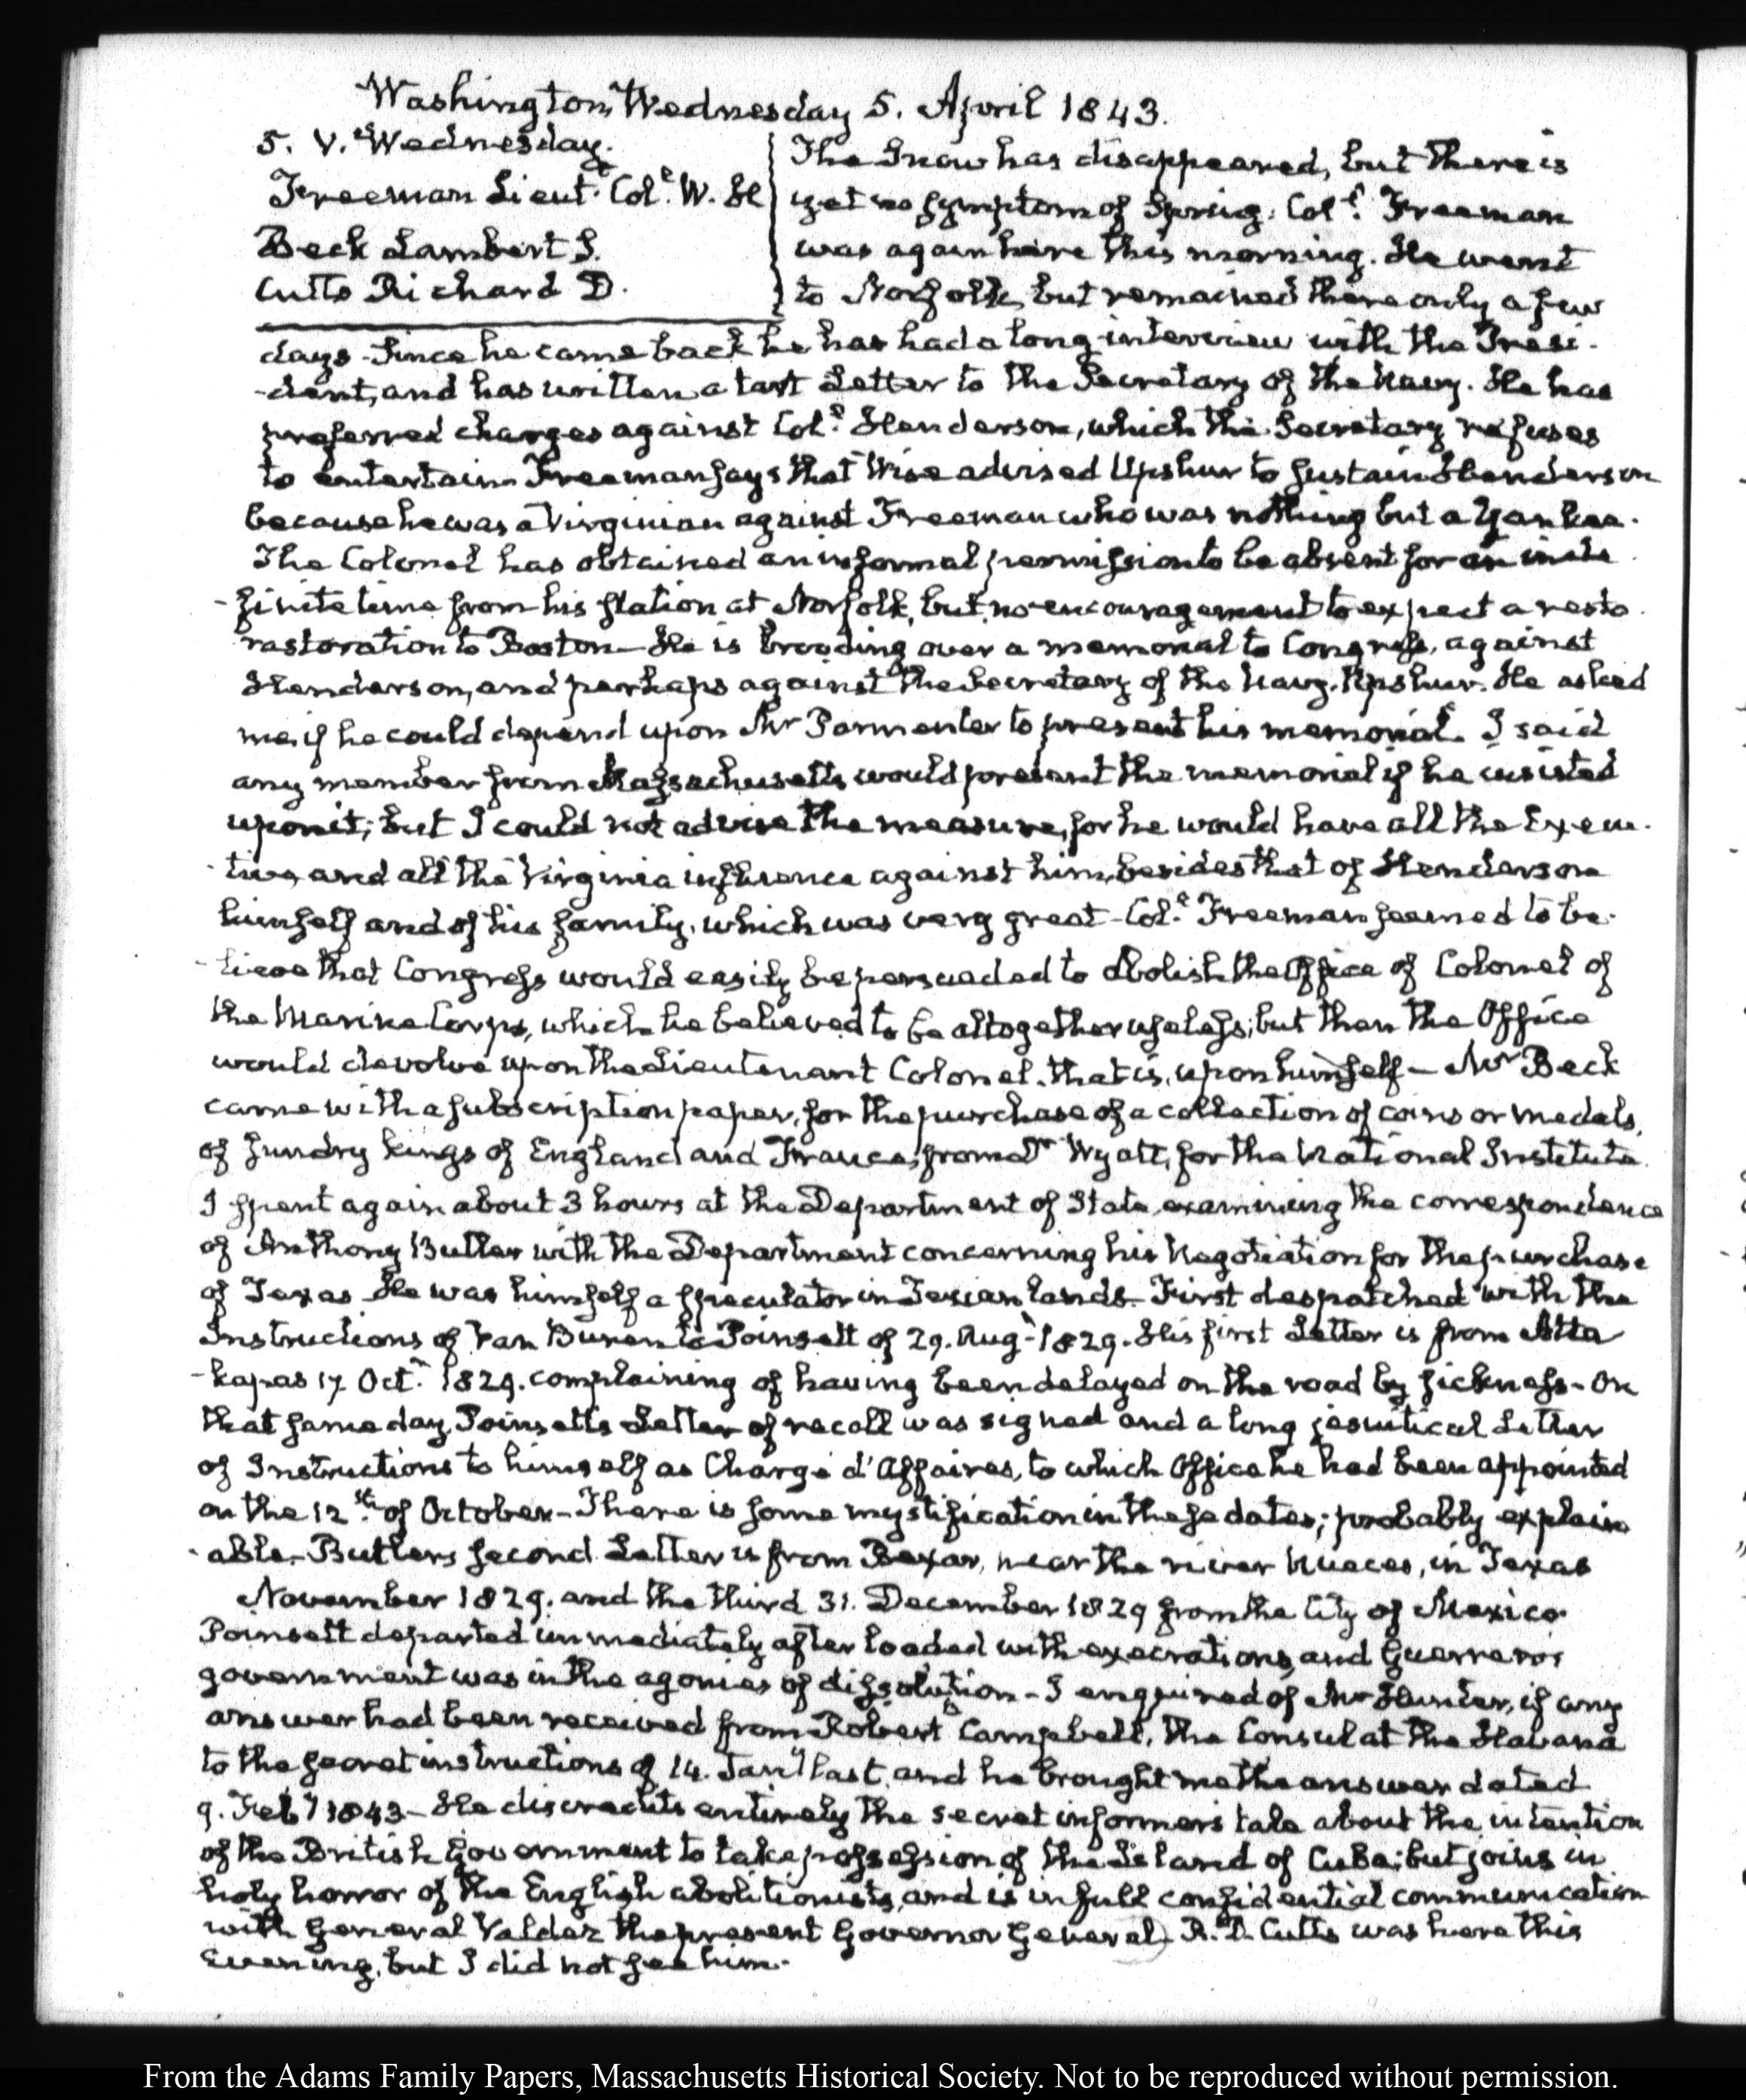 Washington Wednesday 5. April 1843.
5. V. Wednesday.
Freeman Lieut.t Col.l W. H
Beck Lambert S.
Cutts Richard D.
The Snow has disappeared, but there is
yet no symptom of Spring. Col.l Freeman
was again here this morning. He went
to Norfolk, but remained there only a few
days. Since he came back he has had a long interview with the Presi-
-dent, and has written a tart Letter to the Secretary of the Navy. He has
preferred charges against Col.l Henderson, which the Secretary refuses
to entertain. Freeman says that Wise advised Upshur to sustain Henderson
because he was a Virginian against Freeman who was nothing but a Yankee.
The Colonel has obtained an informal permission to be absent for an inde
-finite time from his station at Norfolk, but no encouragement to expect a resto
rastoration to Boston—He is brooding over a memorial to Congress, against
Henderson, and perhaps against the Secretary of the Navy, Upshur. He asked
me, if he could depend upon Mr Parmenter to present his memorial. I said
any member from Massachusetts would present the memorial if he insisted
upon it; but I could not advise the measure, for he would have all the Execu-
-tive, and all the Virginia influence against him, besides that of Henderson
himself and of his family, which was very great—Col.l Freeman seemed to be-
-lieve that Congress would easily be persuaded to abolish the Office of Colonel of
the Marine Corps, which he believed to be altogether useless; but then the Office
would devolve upon the Lieutenant Colonel, that is, upon himself—Mr Beck
came with a subscription paper, for the purchase of a collection of coins or medals,
of sundry kings of England and France, from a Dr Wyatt, for the National Institute.
I spent again about 3 hours at the Department of State, examining the correspondence
of Anthony Butler with the Department concerning his Negotiation for the purchase
of Texas. He was himself a speculator in Texian lands. First despatched with the
Instructions of Van Buren to Poinsett of 29. Aug.t 1829. His first Letter is from Atta
-kapas 17 Oct.r 1829. complaining of having been delayed on the road by sickness—On
that same day, Poinsetts Letter of recall was signed and a long jesuitical Letter
of Instructions to himself as Chargé d'Affaires, to which Office he had been appointed
on the 12.th of October—There is some mystification in these dates; probably explain
-able. Butlers second Letter is from Bexar, near the river Nueces, in Texas
November 1829. and the third 31. December 1829 from the City of Mexico.
Poinsett departed immediately after loaded with execrations, and Guerrero's
government was in the agonies of dissolution—I enquired of Mr Hunter, if any
answer had been received from Robert B Campbell, the Consul at the Havana
to the secret instructions of 14. Jany last, and he brought me the answer dated
9. Feby 1843—He discredits entirely the secret informers tale about the intention
of the British Government to take possession of the Island of Cuba; but joins in
holy horror of the English abolitionists, and is in full confidential communication
with General Valdez the present Governor General. R. D. Cutts was here this
Evening, but I did not see him.
From the Adams Family Papers, Massachusetts Historical Society. Not to be reproduced without permission.